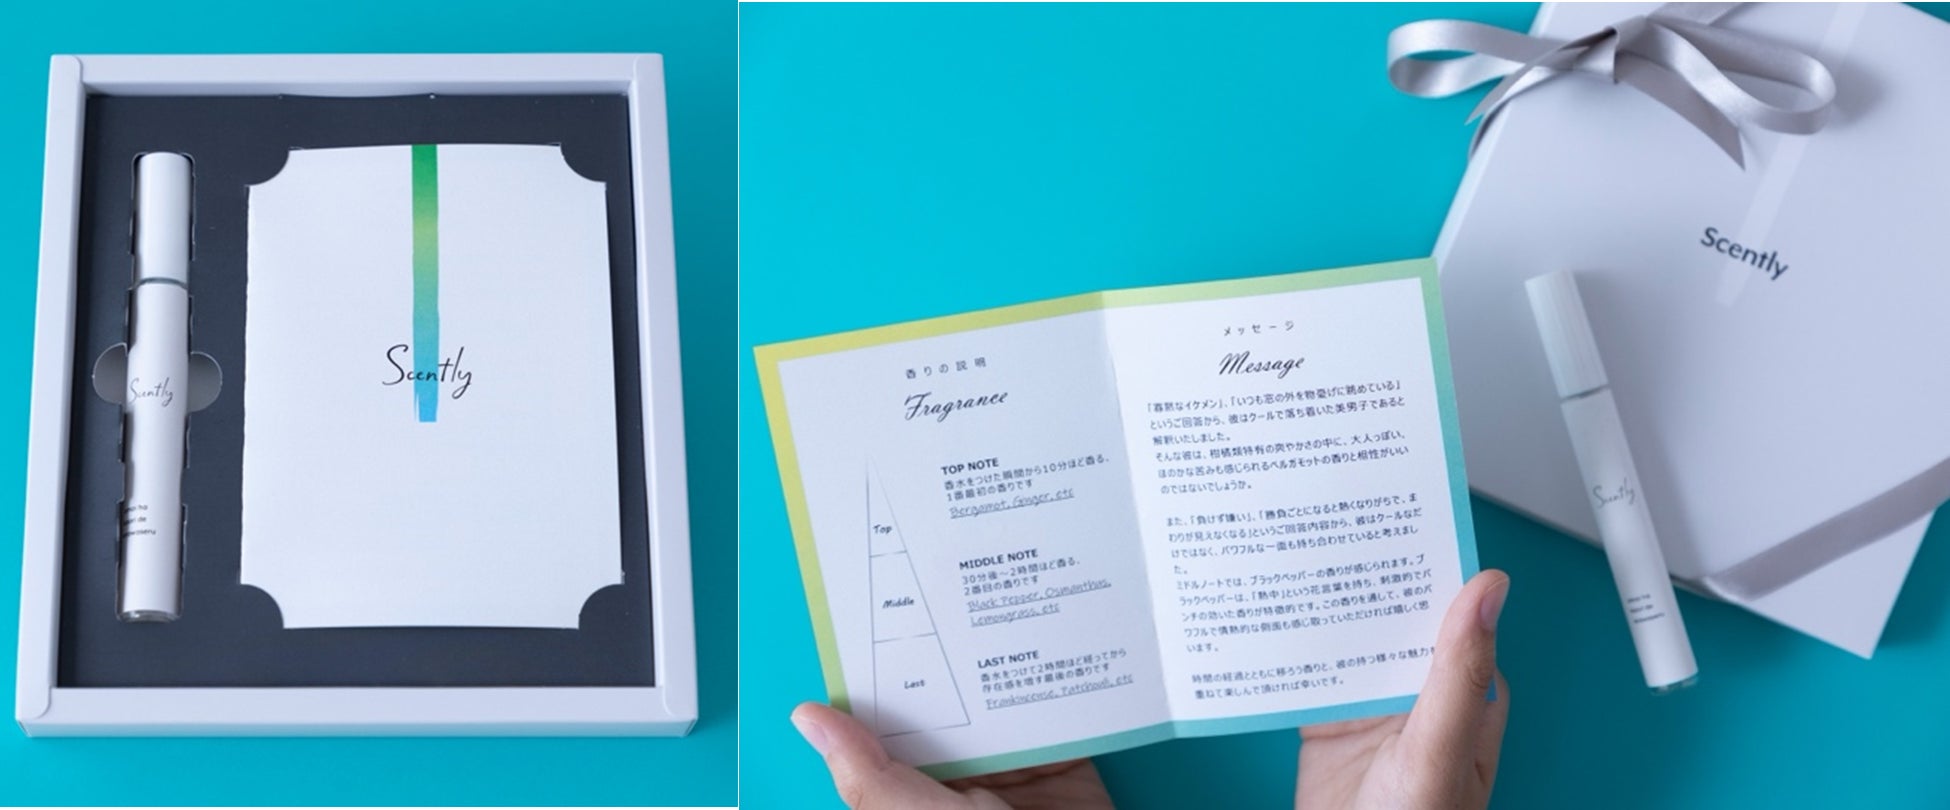 Scently
Scently
Scently
香りの説明
Fragrance
TOP NOTE
香水をつけた瞬間から10分ほど香る、
1番最初の香りです
Bergamot, Ginger, etc
MIDDLE NOTE
30分後～2時間ほど香る、
2番目の香りです
Black Pepper, Osmanthus,
Lemongrass, etc
LAST NOTE
香水をつけて2時間ほど経ってから
存在感を増す最後の香りです
Frankincense, Patchouli, etc
Top
Middle
Last
メッセージ
Message
「寡黙なイケメン」、「いつも窓の外を物憂げに眺めている」
というご回答から、彼はクールで落ち着いた美男子であると
解釈いたしました。
そんな彼は、柑橘類特有の爽やかさの中に、大人っぽい、
ほのかな苦みも感じられるベルガモットの香りと相性がいい
のではないでしょうか。
また、「負けず嫌い」、「勝負ごとになると熱くなりがちで、ま
わりが見えなくなる」というご回答内容から、彼はクールなだ
けではなく、パワフルな一面も持ち合わせていると考えまし
た。
ミドルノートでは、ブラックペッパーの香りが感じられます。ブ
ラックペッパーは、「熱中」という花言葉を持ち、刺激的でパ
ンチの効いた香りが特徴的です。この香りを通して、彼のパ
ワフルで情熱的な側面も感じ取っていただければ嬉しく思
います。
時間の経過とともに移ろう香りと、彼の持つ様々な魅力を
重ねて楽しんで頂ければ幸いです。
Scently